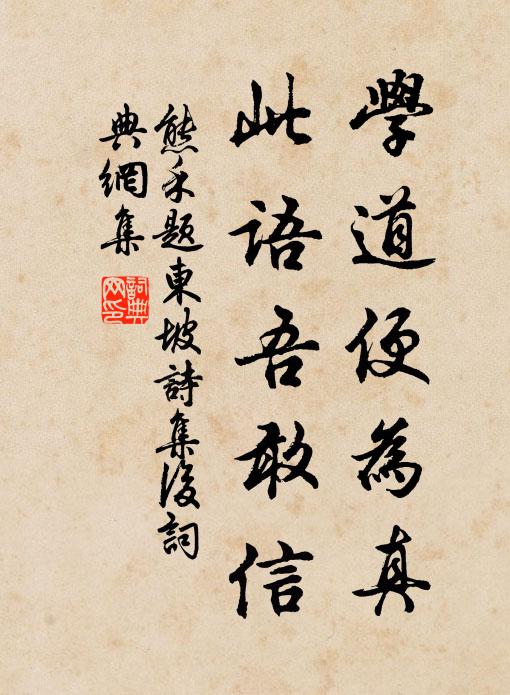 學道便為真
此語吾敢信
熊禾題東坡詩集後詞
典網集
詞典網印